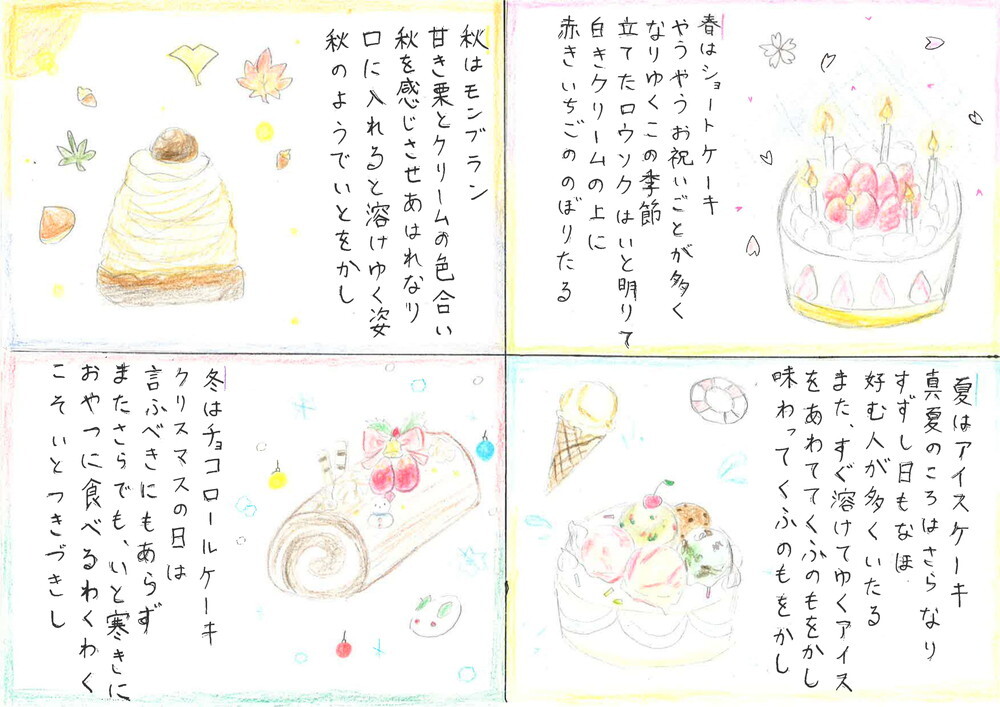 春はショートケーキ
やうやうお祝いごとが多く
なりゆくこの季節
立てたロウソクはいと明りて
白きクリームの上に
赤きいちごののぼりたる
夏はアイスケーキ
真夏のころはさらなり
すずし日もなほ
好む人が多くいたる
また、すぐ溶けてゆくアイス
をあわててくふのもをかし
味わってくふのもをかし
秋はモンブラン
甘き栗とクリームの色合い
秋を感じさせあはれなり
口に入れると溶けゆく姿
秋のようでいとをかし
冬はチョコロールケーキ
クリスマスの日は
言ふべきにもあらず
またさらでも、いと寒きに
おやつに食べるわくわく
こそいとつきづきし